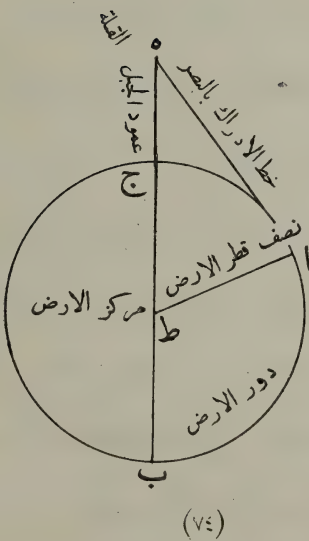 القلة
ه
عمود الجبل
خط الادراك بالبصر
ج
نصف قطر الارض
ا
مركز الارض
ط
دور الارض
ب
(٧٤)